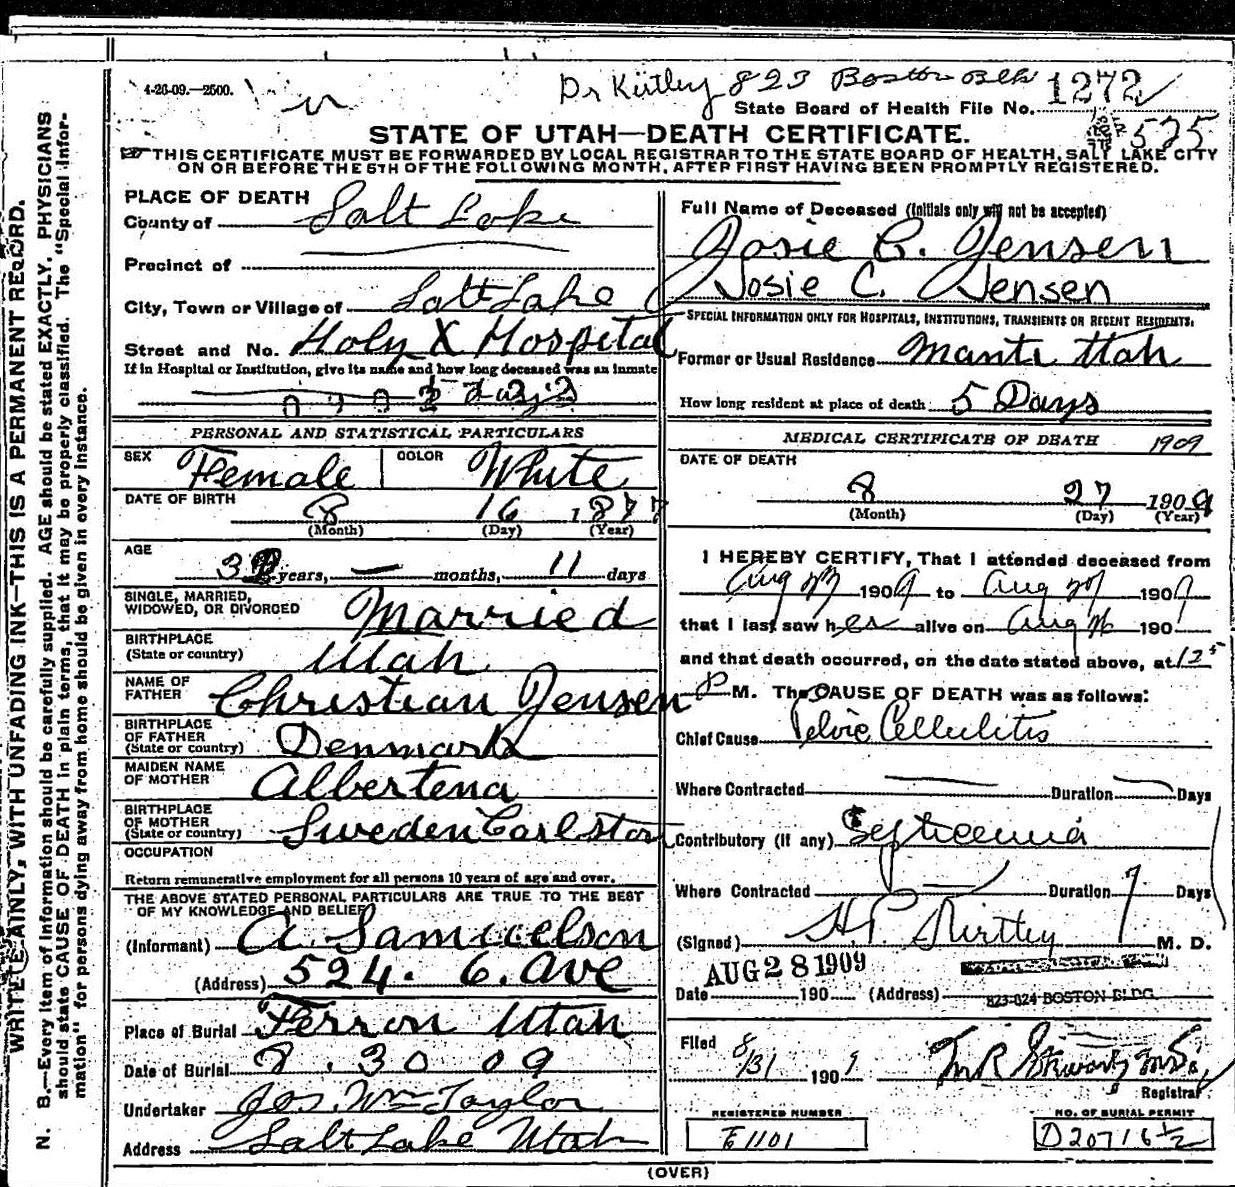 4-26-09.—2500.
Dr Kirtley 823 Boston Blk
State Board of Health File No. 1272
575
STATE OF UTAH—DEATH CERTIFICATE.
THIS CERTIFICATE MUST BE FORWARDED BY LOCAL REGISTRAR TO THE STATE BOARD OF HEALTH, SALT LAKE CITY
ON OR BEFORE THE 5TH OF THE FOLLOWING MONTH, AFTER FIRST HAVING BEEN PROMPTLY REGISTERED.
WRITE PLAINLY, WITH UNFADING INK—THIS IS A PERMANENT RECORD.
N. B.—Every item of information should be carefully supplied. AGE should be stated EXACTLY. PHYSICIANS
should state CAUSE OF DEATH in plain terms, that it may be properly classified. The "Special Infor-
mation" for persons dying away from home should be given in every instance.
PLACE OF DEATH
County of Salt Lake
Precinct of
City, Town or Village of Salt Lake
Street and No. Holy X Hospital
If in Hospital or Institution, give its name and how long deceased was an inmate
5 Days
PERSONAL AND STATISTICAL PARTICULARS
SEX Female COLOR White
DATE OF BIRTH
8 16 1877
(Month) (Day) (Year)
AGE
32 years, — months, 11 days
SINGLE, MARRIED,
WIDOWED, OR DIVORCED Married
BIRTHPLACE
(State or country) Utah
NAME OF
FATHER Christian Jensen
BIRTHPLACE
OF FATHER
(State or country) Denmark
MAIDEN NAME
OF MOTHER Albertena
BIRTHPLACE
OF MOTHER
(State or country) Sweden Carlston
OCCUPATION
Return remunerative employment for all persons 10 years of age and over.
THE ABOVE STATED PERSONAL PARTICULARS ARE TRUE TO THE BEST
OF MY KNOWLEDGE AND BELIEF
(Informant) A. Samuelson
(Address) 524. 6. Ave
Place of Burial Ferron Utah
Date of Burial 8. 30 09
Undertaker Jos. Wm Taylor
Address Salt Lake Utah
Full Name of Deceased (Initials only will not be accepted)
Josie C. Jensen
Josie C. Jensen
SPECIAL INFORMATION ONLY FOR HOSPITALS, INSTITUTIONS, TRANSIENTS OR RECENT RESIDENTS.
Former or Usual Residence Manti Utah
How long resident at place of death 5 Days
MEDICAL CERTIFICATE OF DEATH 1909
DATE OF DEATH
8 27 1909
(Month) (Day) (Year)
I HEREBY CERTIFY, That I attended deceased from
Aug 1909 to Aug 27 1909
that I last saw her alive on Aug 190
and that death occurred, on the date stated above, at 12 5
P M. The CAUSE OF DEATH was as follows:
Chief Cause Pelvic Cellulitis
Where Contracted Duration Days
Contributory (if any) Septicemia
Where Contracted Duration 7 Days
(Signed) H.P. Kirtley M. D.
AUG 28 1909
Date 190 (Address) 823-824 BOSTON BLDG.
Filed 8/31 1909 T.R. Stewart M.D.
Registrar
REGISTERED NUMBER
E1101
NO. OF BURIAL PERMIT
D20716 1/2
(OVER)